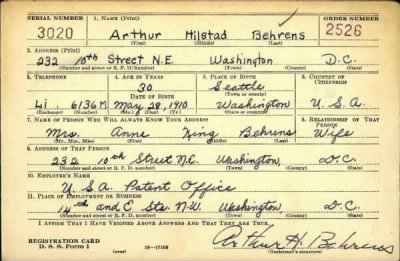 SERIAL NUMBER 1. NAME (Print) ORDER NUMBER
3020 Arthur Hilstad Behrens 2526
(First) (Middle) (Last)
2. ADDRESS (Print)
232 10th Street N.E. Washington D.C.
(Number and street or R. F. D. number) (Town) (County) (State)
3. TELEPHONE 4. AGE IN YEARS 5. PLACE OF BIRTH 6. COUNTRY OF CITIZENSHIP
30 Seattle
DATE OF BIRTH (Town or county)
Li. 6136M May 28, 1910 Washington U.S.A.
(Exchange) (Number) (Mo.) (Day) (Yr.) (State or country)
7. NAME OF PERSON WHO WILL ALWAYS KNOW YOUR ADDRESS 8. RELATIONSHIP OF THAT PERSON
Mrs. Anne King Behrens Wife
(Mr., Mrs., Miss) (First) (Middle) (Last)
9. ADDRESS OF THAT PERSON
232 10th Street N.E. Washington, D.C.
(Number and street or R. F. D. number) (Town) (County) (State)
10. EMPLOYER'S NAME
U.S.A. Patent Office
11. PLACE OF EMPLOYMENT OR BUSINESS
14th and E Sts. N.W. Washington D.C.
(Number and street or R. F. D. number) (Town) (County) (State)
I AFFIRM THAT I HAVE VERIFIED ABOVE ANSWERS AND THAT THEY ARE TRUE.
REGISTRATION CARD
D. S. S. Form 1 (over) 16—17105 Arthur H. Behrens
(Registrant's signature)